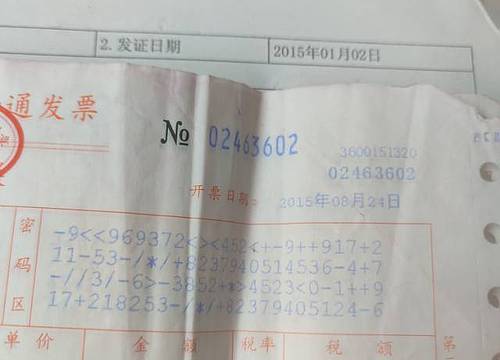 2. 发证日期 2015年01月02日
通发票
№ 02463602
3600151320
02463602
开票日期: 2015年08月24日
密码区
-9<<969372<><452<+-9++917+2
11-53-/*/+8237940514536-4+7
-//3/-6>-3852+*>4523<0-1++9
17+218253-/*/+82379405124-6
单价 金额 税率 税额 第